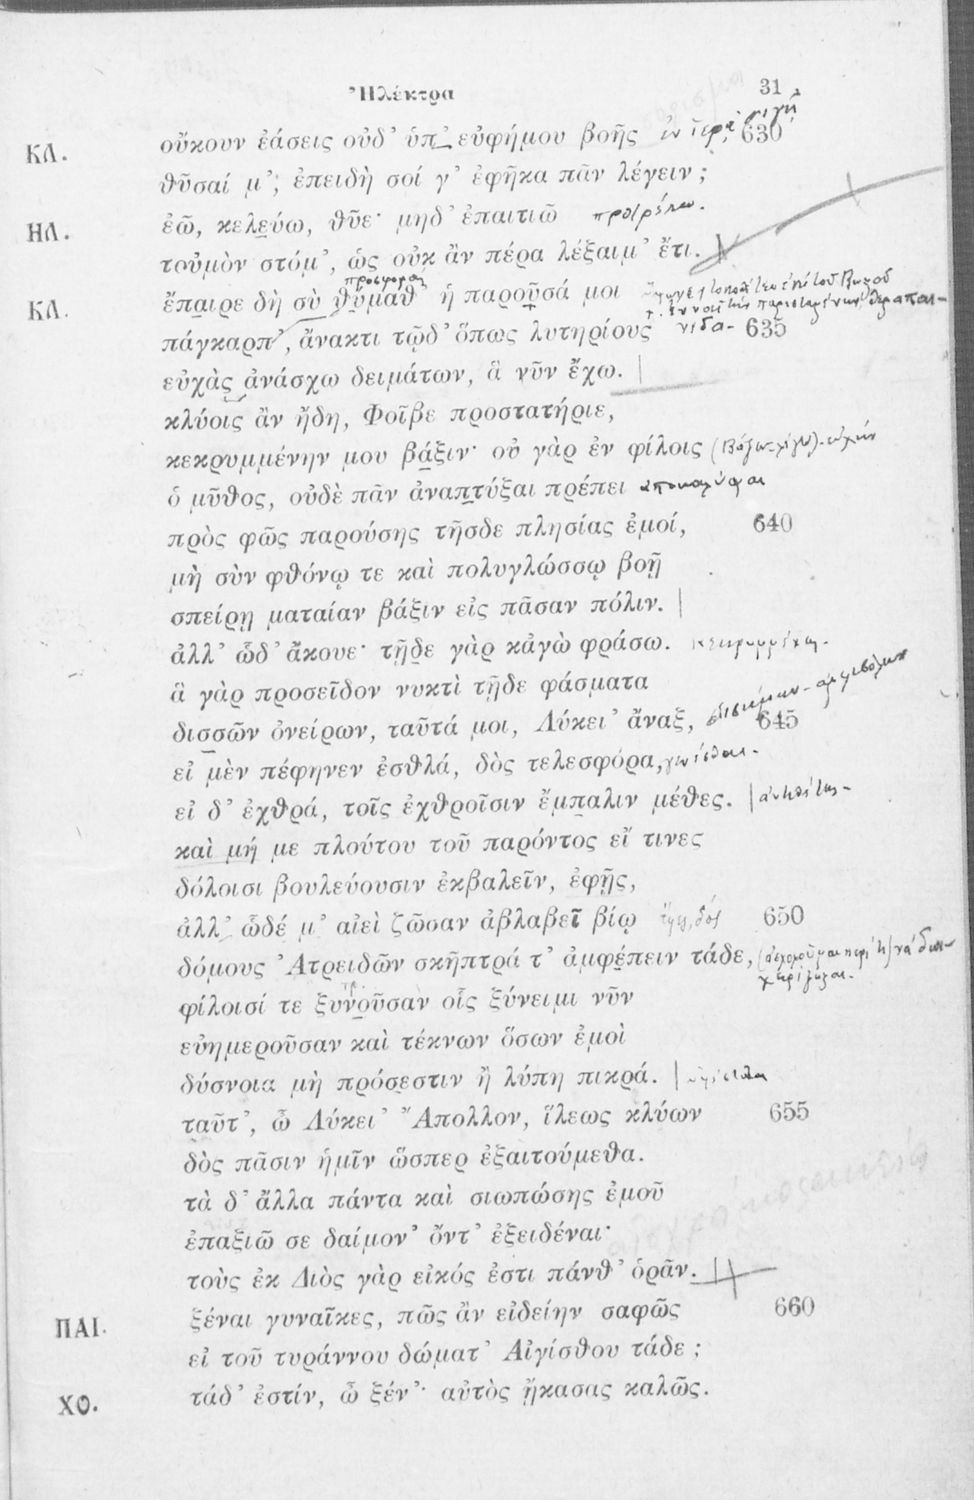 Ἠλέκτρα 31
ΚΛ. οὔκουν ἐάσεις οὐδ' ὑπ' εὐφήμου βοῆς ἐν ἱερᾷ σιγῇ, 630
θῦσαί μ'; ἐπειδὴ σοί γ' ἐφῆκα πᾶν λέγειν;
ΗΛ. ἐῶ, κελεύω, θῦε· μηδ' ἐπαιτιῶ προτρέπω.
τοὐμὸν στόμ', ὡς οὐκ ἂν πέρα λέξαιμ' ἔτι.
προσφοράς
ΚΛ. ἔπαιρε δὴ σὺ θύμαθ' ἡ παροῦσά μοι
πάγκαρπ', ἄνακτι τῷδ' ὅπως λυτηρίους 635
εὐχὰς ἀνάσχω δειμάτων, ἃ νῦν ἔχω.
κλύοις ἂν ἤδη, Φοῖβε προστατήριε,
κεκρυμμένην μου βάξιν· οὐ γὰρ ἐν φίλοις
ὁ μῦθος, οὐδὲ πᾶν ἀναπτύξαι πρέπει
πρὸς φῶς παρούσης τῆσδε πλησίας ἐμοί, 640
μὴ σὺν φθόνῳ τε καὶ πολυγλώσσῳ βοῇ
σπείρῃ ματαίαν βάξιν εἰς πᾶσαν πόλιν.
ἀλλ' ὧδ' ἄκουε· τῇδε γὰρ κἀγὼ φράσω.
ἃ γὰρ προσεῖδον νυκτὶ τῇδε φάσματα
δισσῶν ὀνείρων, ταῦτά μοι, Λύκει' ἄναξ, 645
εἰ μὲν πέφηνεν ἐσθλά, δὸς τελεσφόρα,
εἰ δ' ἐχθρά, τοῖς ἐχθροῖσιν ἔμπαλιν μέθες.
καὶ μή με πλούτου τοῦ παρόντος εἴ τινες
δόλοισι βουλεύουσιν ἐκβαλεῖν, ἐφῇς,
ἀλλ' ὧδέ μ' αἰεὶ ζῶσαν ἀβλαβεῖ βίῳ 650
δόμους Ἀτρειδῶν σκῆπτρά τ' ἀμφέπειν τάδε,
φίλοισί τε ξυνοῦσαν οἷς ξύνειμι νῦν
εὐημεροῦσαν καὶ τέκνων ὅσων ἐμοὶ
δύσνοια μὴ πρόσεστιν ἢ λύπη πικρά.
ταῦτ', ὦ Λύκει' Ἄπολλον, ἵλεως κλύων 655
δὸς πᾶσιν ἡμῖν ὥσπερ ἐξαιτούμεθα.
τὰ δ' ἄλλα πάντα καὶ σιωπώσης ἐμοῦ
ἐπαξιῶ σε δαίμον' ὄντ' ἐξειδέναι·
τοὺς ἐκ Διὸς γὰρ εἰκός ἐστι πάνθ' ὁρᾶν.
ΠΑΙ. ξέναι γυναῖκες, πῶς ἂν εἰδείην σαφῶς 660
εἰ τοῦ τυράννου δώματ' Αἰγίσθου τάδε;
ΧΟ. τάδ' ἐστίν, ὦ ξέν'· αὐτὸς ᾔκασας καλῶς.